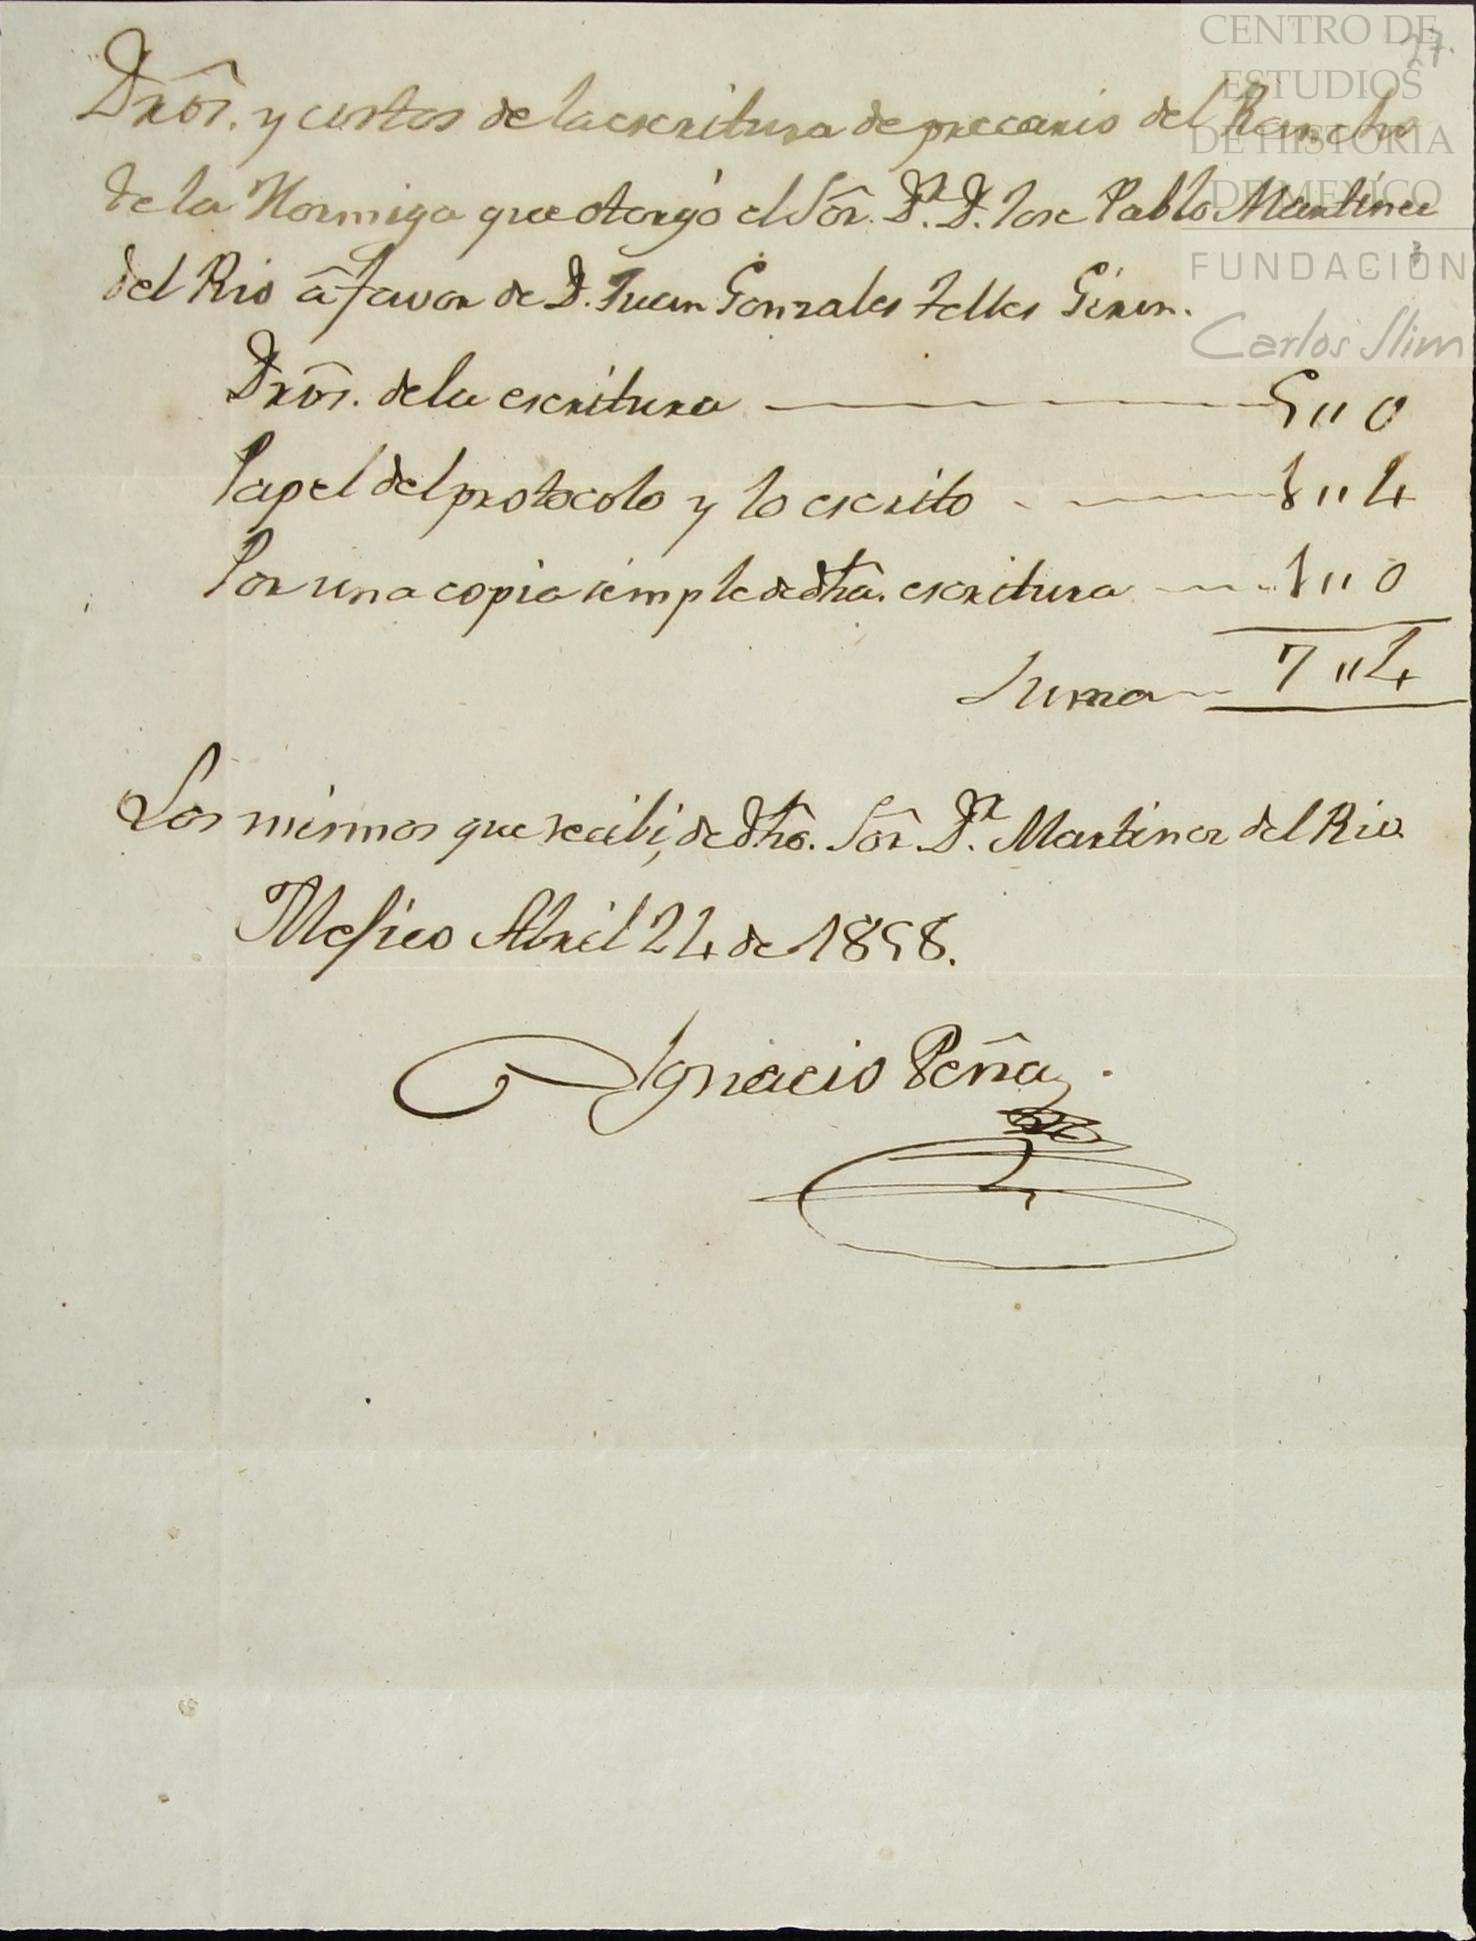 27.
CENTRO DE
ESTUDIOS
DE HISTORIA
DE MEXICO
FUNDACION
Carlos Slim
Drôs. y costas de la escritura de precario del Rancho
de la Hormiga que otorgó el Sôr. Dn. D. Jose Pablo Martinez
del Rio â favor de D. Juan Gonzales Telles Giron.
Drôs. de la escritura — 5 " 0
Papel del protocolo y lo escrito — 1 " 4
Por una copia simple de dha. escritura — 1 " 0
Suma — 7 " 4
Los mismos que recibi, de dho. Sôr. Dn. Martinez del Rio.
Mejico Abril 24 de 1858.
Ygnacio Peña.